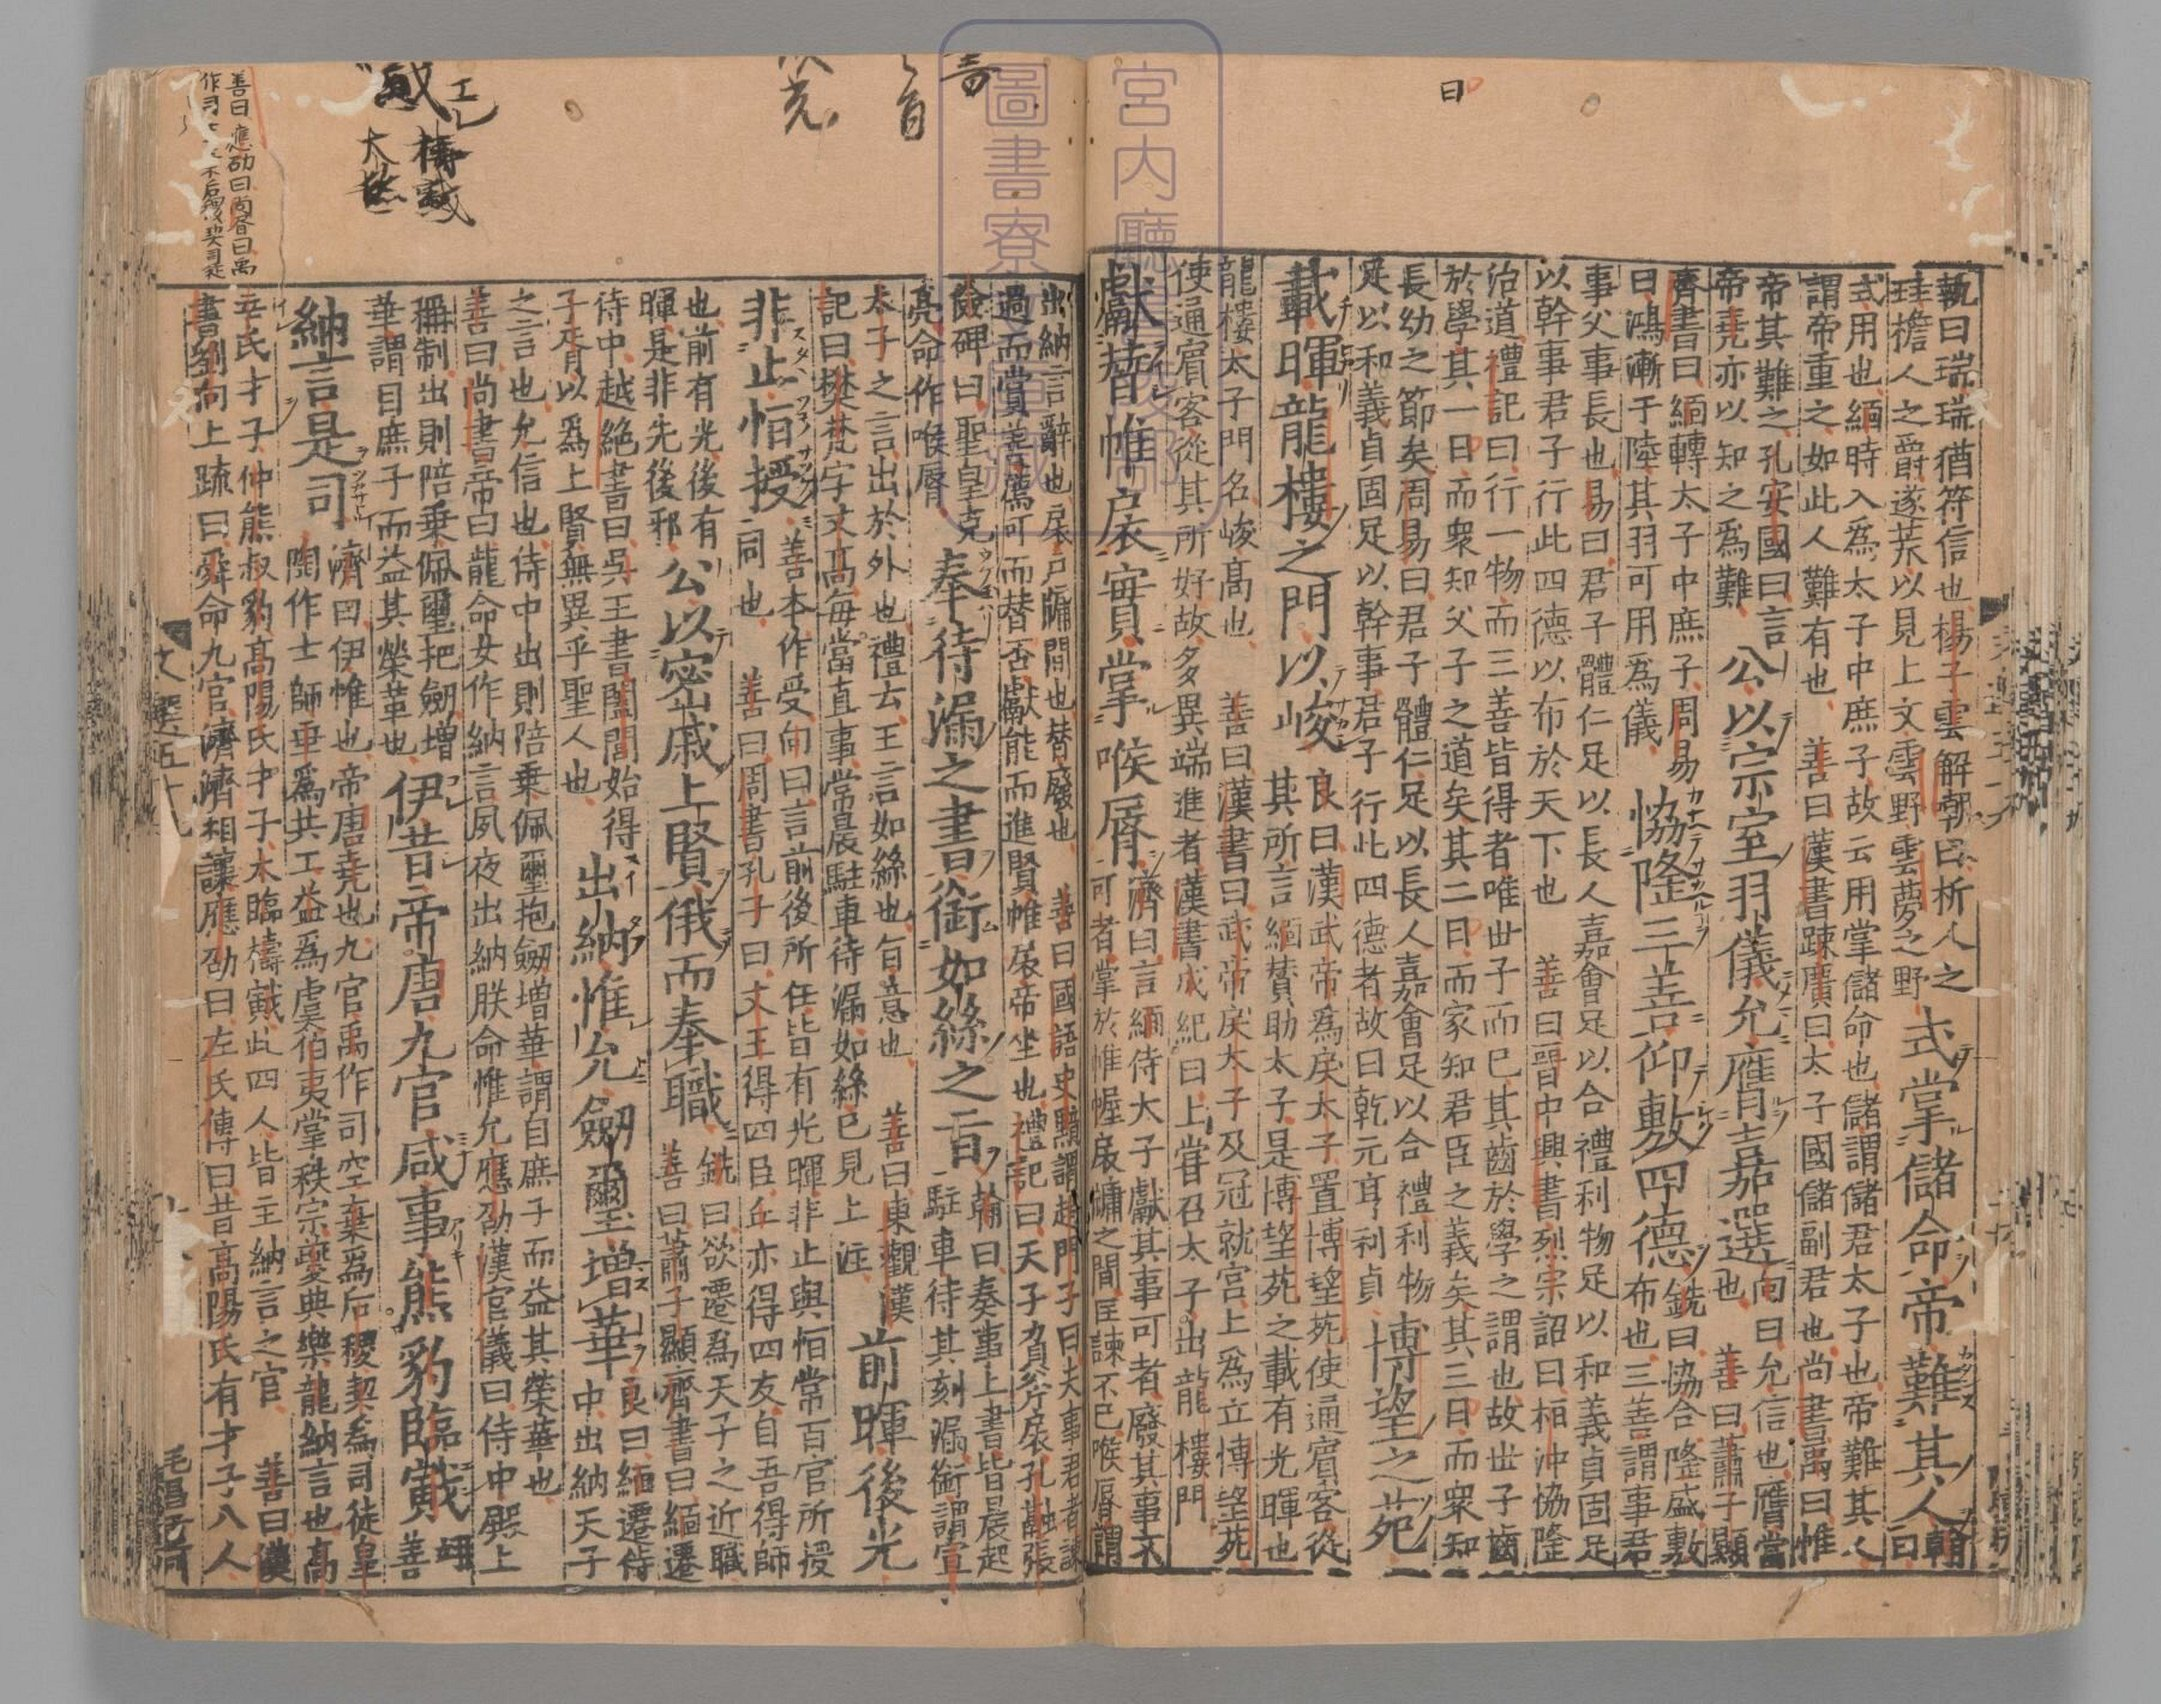 執曰瑞瑞猶符信也楊子雲解嘲曰析人之
珪擔人之爵遂荒以見上文雲野雲夢之野
式掌儲命帝難其人
翰曰
式用也緬時入為太子中庶子故云用掌儲命也儲謂儲君太子也帝難其人
謂帝重之如此人難有也 善曰漢書踈廣曰太子國儲副君也尚書禹曰惟
帝其難之孔安國曰言
帝堯亦以知之為難
公以宗室羽儀允膺嘉選
向曰允信也膺當
也 善曰蕭子顯
齊書曰緬轉太子中庶子周易
曰鴻漸于陸其羽可用為儀
恊隆三善仰敷四德
銑曰協合隆盛敷
布也三善謂事君
事父事長也易曰君子體仁足以長人嘉會足以合禮利物足以和義貞固足
以幹事君子行此四德以布於天下也 善曰晉中興書烈宗詔曰桓沖協隆
治道禮記曰行一物而三善皆得者唯世子而已其齒於學之謂也故世子齒
於學其一曰而衆知父子之道矣其二曰而家知君臣之義矣其三曰而衆知
長幼之節矣周易曰君子體仁足以長人嘉會足以合禮利物
足以和義貞固足以幹事君子行此四德者故曰乾元亨利貞
博望之苑
載暉龍樓之門以峻
良曰漢武帝為戾太子置博望苑使通賓客從
其所言緬賛助太子是博望苑之載有光暉也
龍樓太子門名峻高也 善曰漢書曰武帝戾太子及冠就宮上為立博望苑
使通賓客從其所好故多異端進者漢書成紀曰上嘗召太子出龍樓門
獻替帷扆實掌喉脣
濟曰言緬侍太子獻其事可者廢其事不
可者掌於帷幄扆牗之間匡諫不已喉脣謂
出納言辭也扆戶牗間也替廢也 善曰國語史黯謂趙門子曰夫事君者諫
過而賞善薦可而替否獻能而進賢帷扆帝坐也禮記曰天子負斧扆孔融張
儉碑曰聖皇克
亮命作喉脣
奉待漏之書銜如絲之旨
翰曰奏事上書皆晨起
駐車待其刻漏銜謂宣
太子之言出於外也禮云王言如絲也旨意也 善曰東觀漢
記曰樊梵字文高每當直事常晨駐車待漏如絲已見上注
前暉後光
非止恒授
善本作受向曰言前後所任皆有光暉非止與恒常百官所授
同也 善曰周書孔子曰文王得四臣丘亦得四友自吾得師
也前有光後有
暉是非先後邪
公以密戚上賢俄而奉職
銑曰欲遷為天子之近職
善曰蕭子顯齊書曰緬遷
侍中越絶書曰吳王書闔閭始得
子胥以為上賢無異乎聖人也
出納惟允劒璽增華
良曰緬遷侍
中出納天子
之言也允信也侍中出則陪乗佩璽抱劒增華謂自庶子而益其榮華也
善曰尚書帝曰龍命女作納言夙夜出納朕命惟允應劭漢官儀曰侍中殿上
稱制出則陪乗佩璽把劒增
華謂自庶子而益其榮華也
伊昔帝唐九官咸事熊豹臨戭
善
納言是司
濟曰伊惟也帝唐堯也九官禹作司空棄為后稷契為司徒皇
陶作士師垂為共工益為虞伯夷掌秩宗夔典樂龍納言也高
辛氏才子仲熊叔豹高陽氏才子大臨檮戭此四人皆主納言之官 善曰漢
書劉向上疏曰舜命九官濟濟相讓應劭曰左氏傳曰昔高陽氏有才子八人
文選五十九
宮内廳
圖書寮